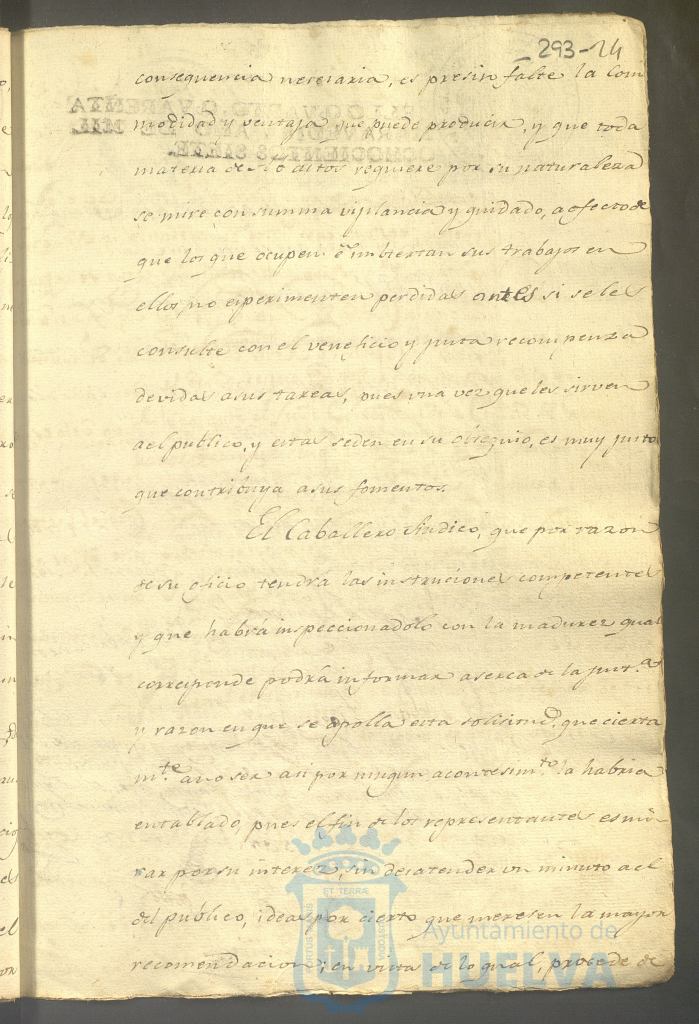 293-24
consequencia neresaria, es presin falte la Com
modidad y ventaja que puede producir, y que toda
materia de reditos requiere por su naturaleza
se mire con summa vijilancia y quidado, a efecto de
que los que ocupen é imbiertan sus trabajos en
ellos, no experimenten perdidas antes si se les
consulte con el veneficio y justa recompenza
devidas a sus tareas, pues una vez que les sirven
a el publico, y estas seden en su obsequio, es muy justo
que contribuya a sus fomentos.
El Caballero Sindico, que por razon
de su oficio tendrá las instruciones competentes
y que habrá inspeccionadolo con la madurez qual
corresponde podrá informar aserca de la just.ª
y razon en que se apolla esta solisitud, que cierta
m.te a no ser asi por ningun acontesim.to la habria
entablado, pues el fin de los representantes es mi-
rar por su interez, sin desatender un minuto a el
del público, ideas por cierto que meresen la mayor
recomendacion; en vista de lo qual, procede de
ET TERRÆ
Ayuntamiento de
HUELVA